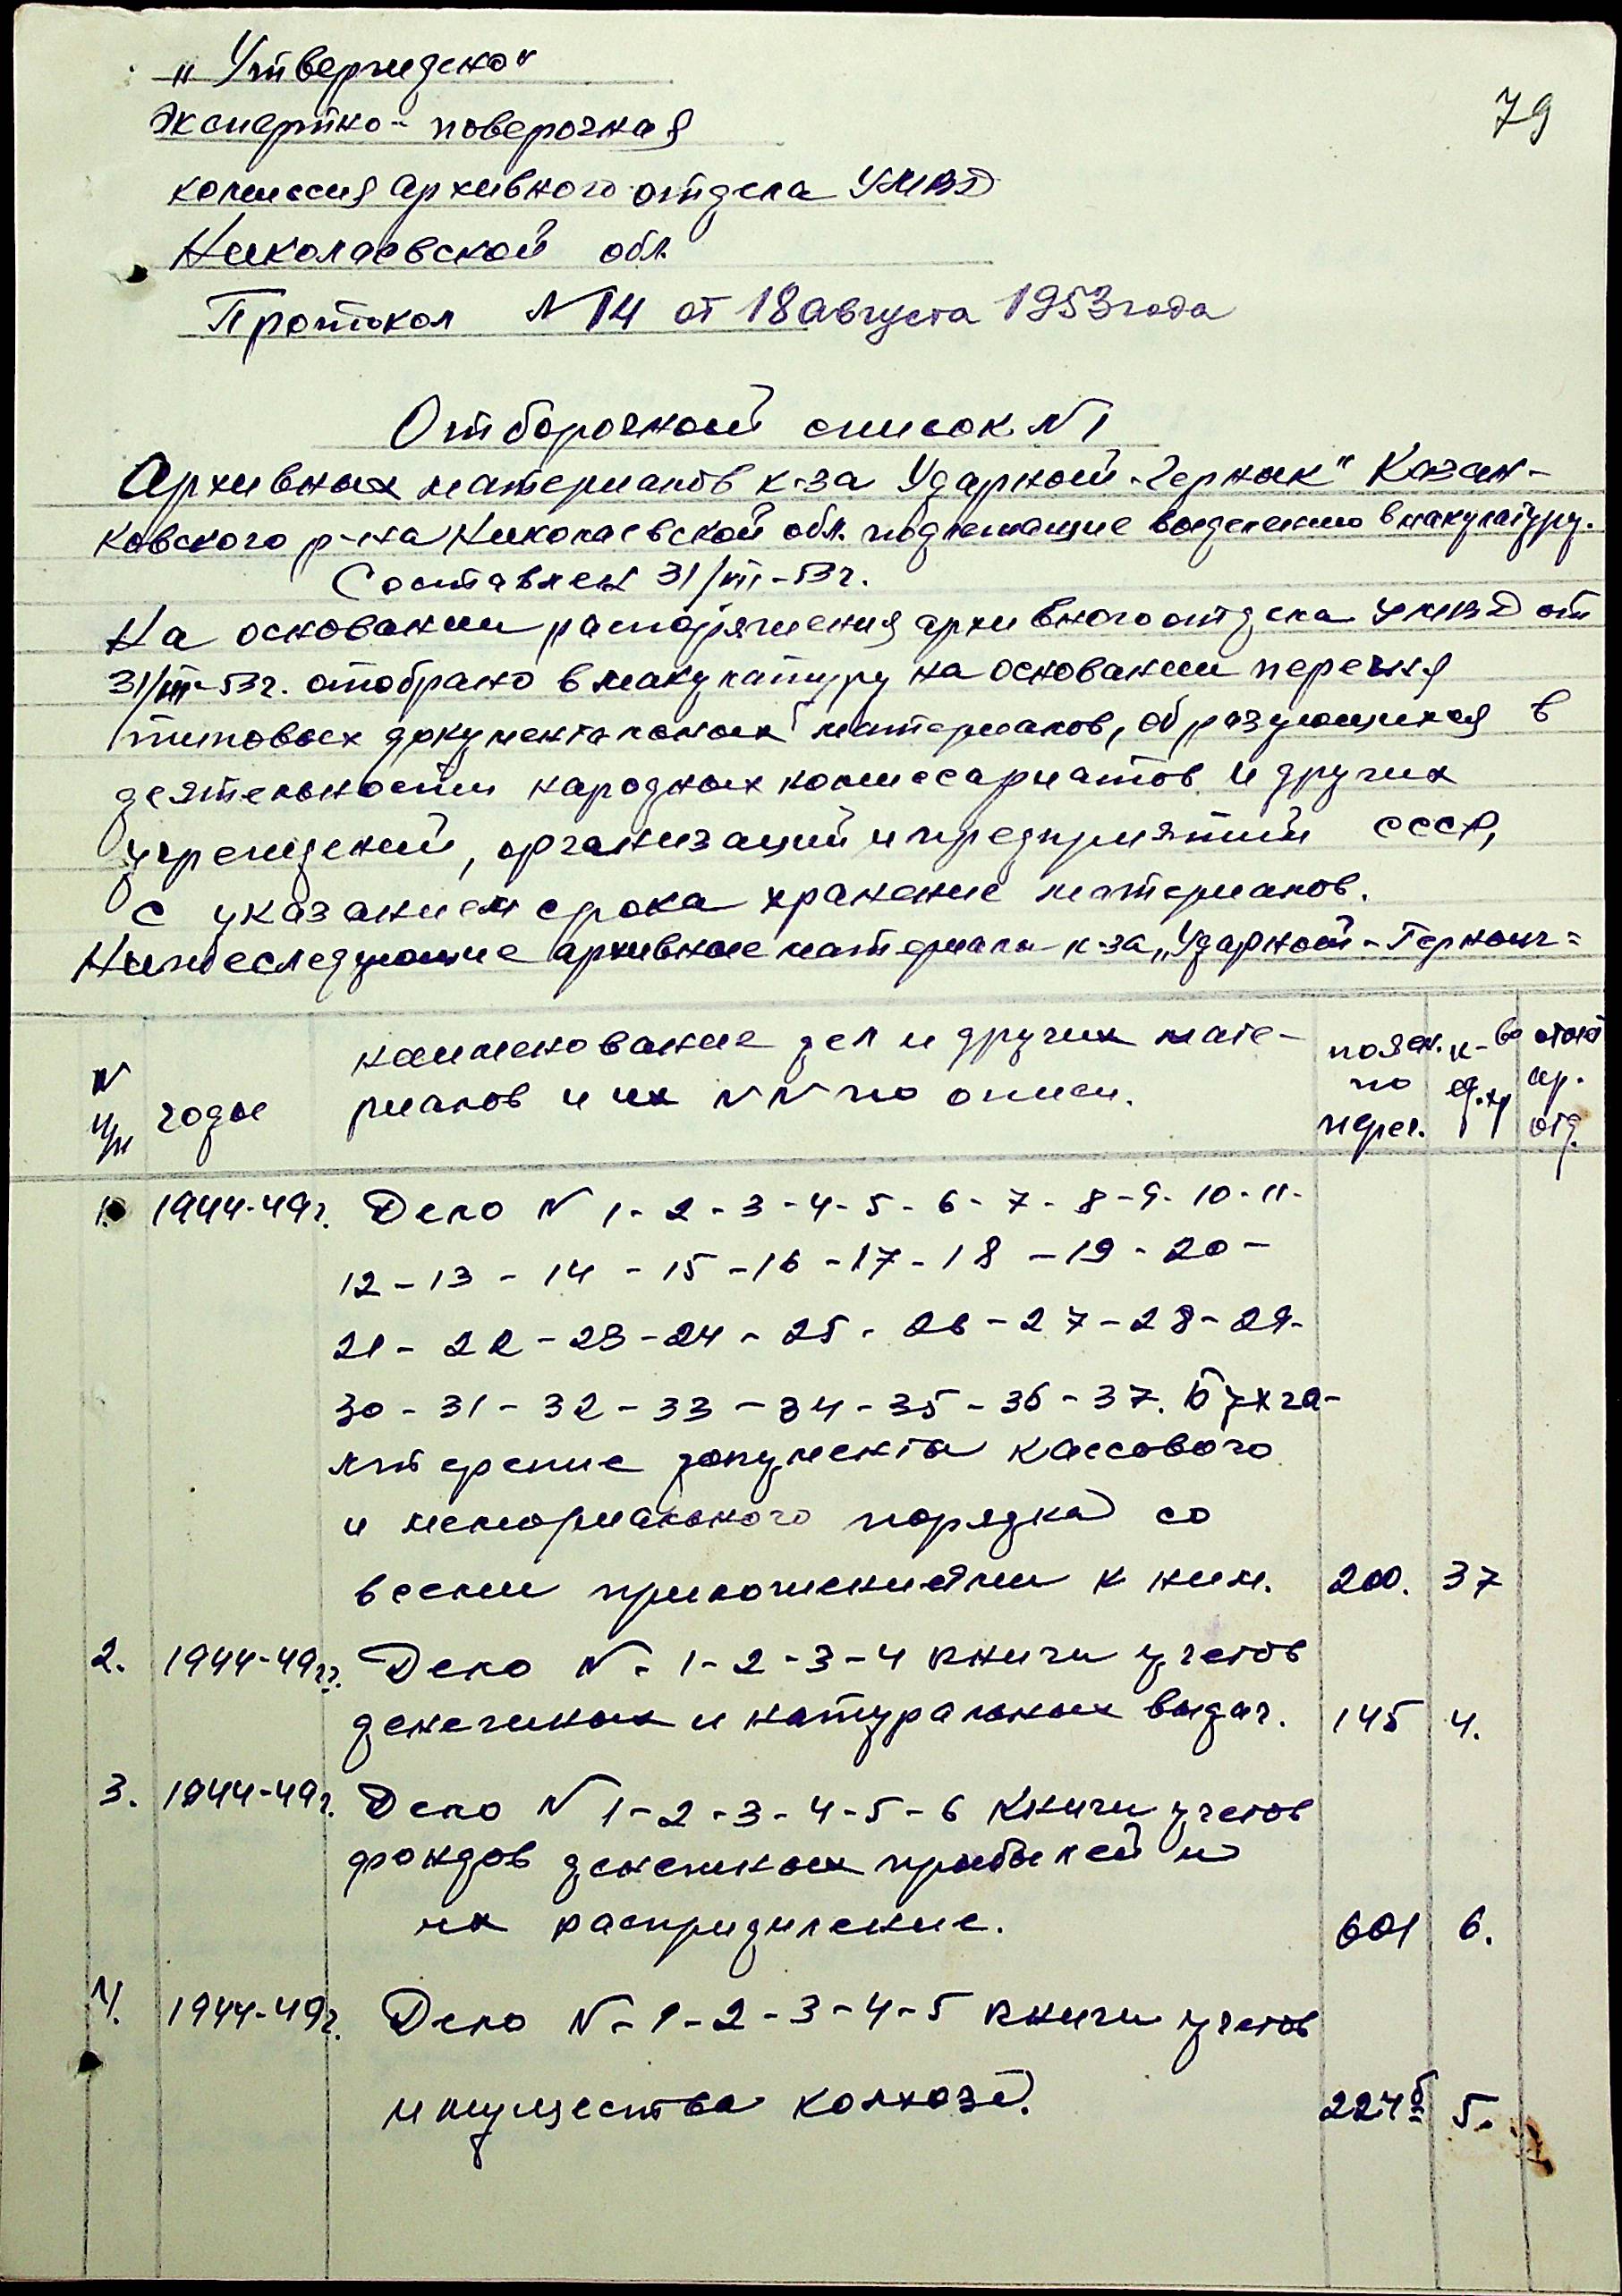 „Утверждено"
79
Экспертно-поверочная
комиссия архивного отдела УМВД
Николаевской обл.
Протокол N 14 от 18 августа 1953 года
Отборочный список N 1
Архивных материалов к-за Ударный-Черные" Казан-
ковского р-на Николаевской обл. подлежащие выделению в макулатуру.
Составлен 31/III-53г.
На основании распоряжения архивного отдела УМВД от
31/III-53г. отобрано в макулатуру на основании перечня
типовых документальных материалов, образующихся в
деятельности народных комиссариатов и других
учреждений, организаций и предприятий СССР,
с указанием срока хранение материалов.
Нижеследующие архивные материалы к-за „Ударный-
N п/п
годы
наименование дел и других мате-
риалов и их NN по описи.
по
переч.
к-во
ед.хр
ар.
отд.
1. 1944-49г. Дело N 1-2-3-4-5-6-7-8-9-10-11-
12-13-14-15-16-17-18-19-20-
21-22-23-24-25-26-27-28-29-
30-31-32-33-34-35-36-37. Бухга-
лтерские документы кассового
и мемориального порядка со
всеми приложениями к ним. 200. 37
2. 1944-49гг. Дело N-1-2-3-4 книги учетов
денежных и натуральных выдач. 145 4.
3. 1944-49г. Дело N 1-2-3-4-5-6 Книги учетов
фондов денежных прибылей и
их распридиление. 601 6.
4. 1944-49г. Дело N-1-2-3-4-5 книги учетов
имущества колхоза. 224б 5.